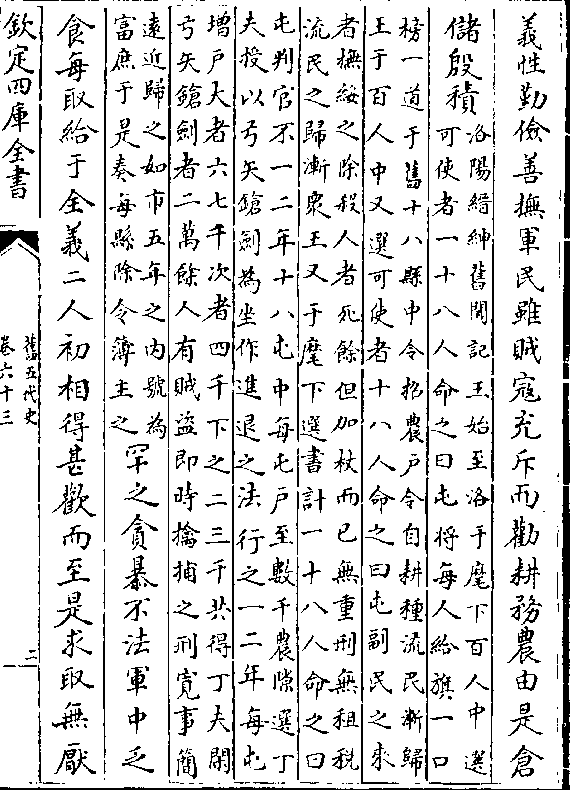 義性勤儉善撫軍民雖賊寇充斥而勸耕務農由是倉
儲殷積
洛陽縉紳舊聞記王始至洛于麾下百人中選
可使者一十八人命之曰屯將每人給旗一口
榜一道于舊十八縣中令招農戶令自耕種流民漸歸
王于百人中又選可使者十八人命之曰屯副民之來
者撫綏之除殺人者死餘但加杖而已無重刑無租税
流民之歸漸衆王又于麾下選書計一十八人命之曰
屯判官不一二年十八屯中每屯戶至數千農隙選丁
夫授以弓矢鎗劍為坐作進退之法行之一二年每屯
增戶大者六七千次者四千下之二三千共得丁夫閑
弓矢鎗劍者二萬餘人有賊盜即時擒捕之刑寛事簡
遠近歸之如市五年之内號為
富庶于是奏每縣除令簿主之
罕之貪暴不法軍中乏
食每取給于全義二人初相得甚歡而至是求取無厭
欽定四庫全書
舊五代史
卷六十三
二